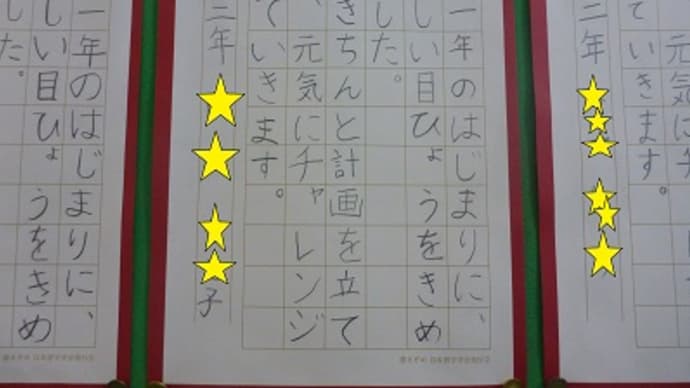 元気にチ
ていきます。
三年
一年のはじまりに、
しい目ひょうをきめ
した。
きちんと計画を立て
、元気にチャレンジ
ていきます。
三年 子
一年のはじまりに、
しい目ひょうをきめ
した。